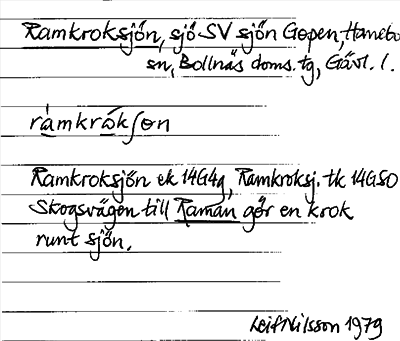 Ramkroksjön, sjö SV sjön Gopen, Hanebo
sn, Bollnäs doms. tg, Gävl. l.
ràmkrákʃøn
Ramkroksjön ek 14G4g, Ramkroksj. tk 14GSO
Skogsvägen till Raman gör en krok
runt sjön.
Leif Nilsson 1979